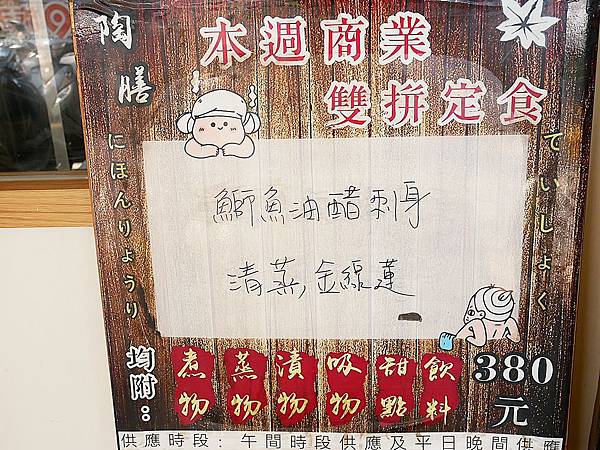 陶膳
本週商業
雙拼定食
にほんりょうり
ていしょく
鰤魚油醋刺身
清蒸金線蓮
均附：
煮物
蒸物
漬物
吸物
甜點
飲料
380元
供應時段：午間時段供應及平日晚間供應